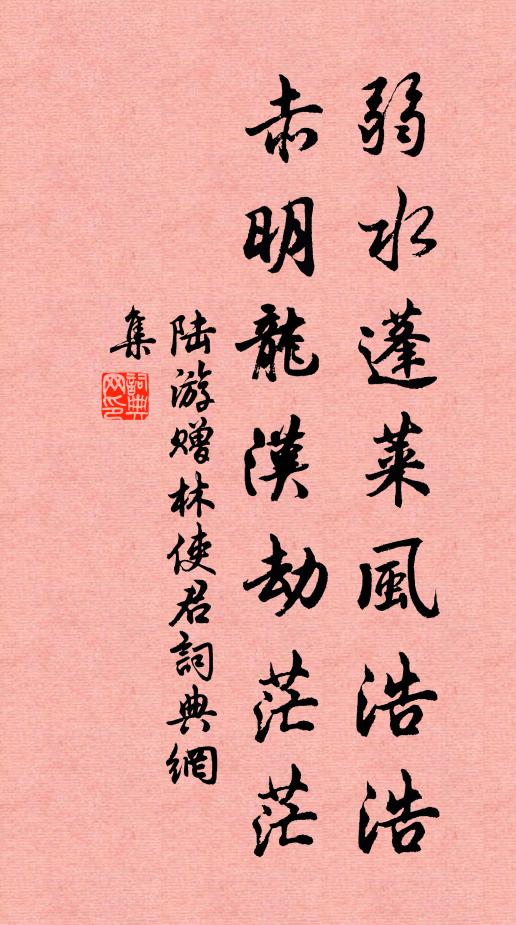 弱水蓬萊風浩浩
赤明龍漢劫茫茫
陆游赠林使君詞典網
集
詞典
网印